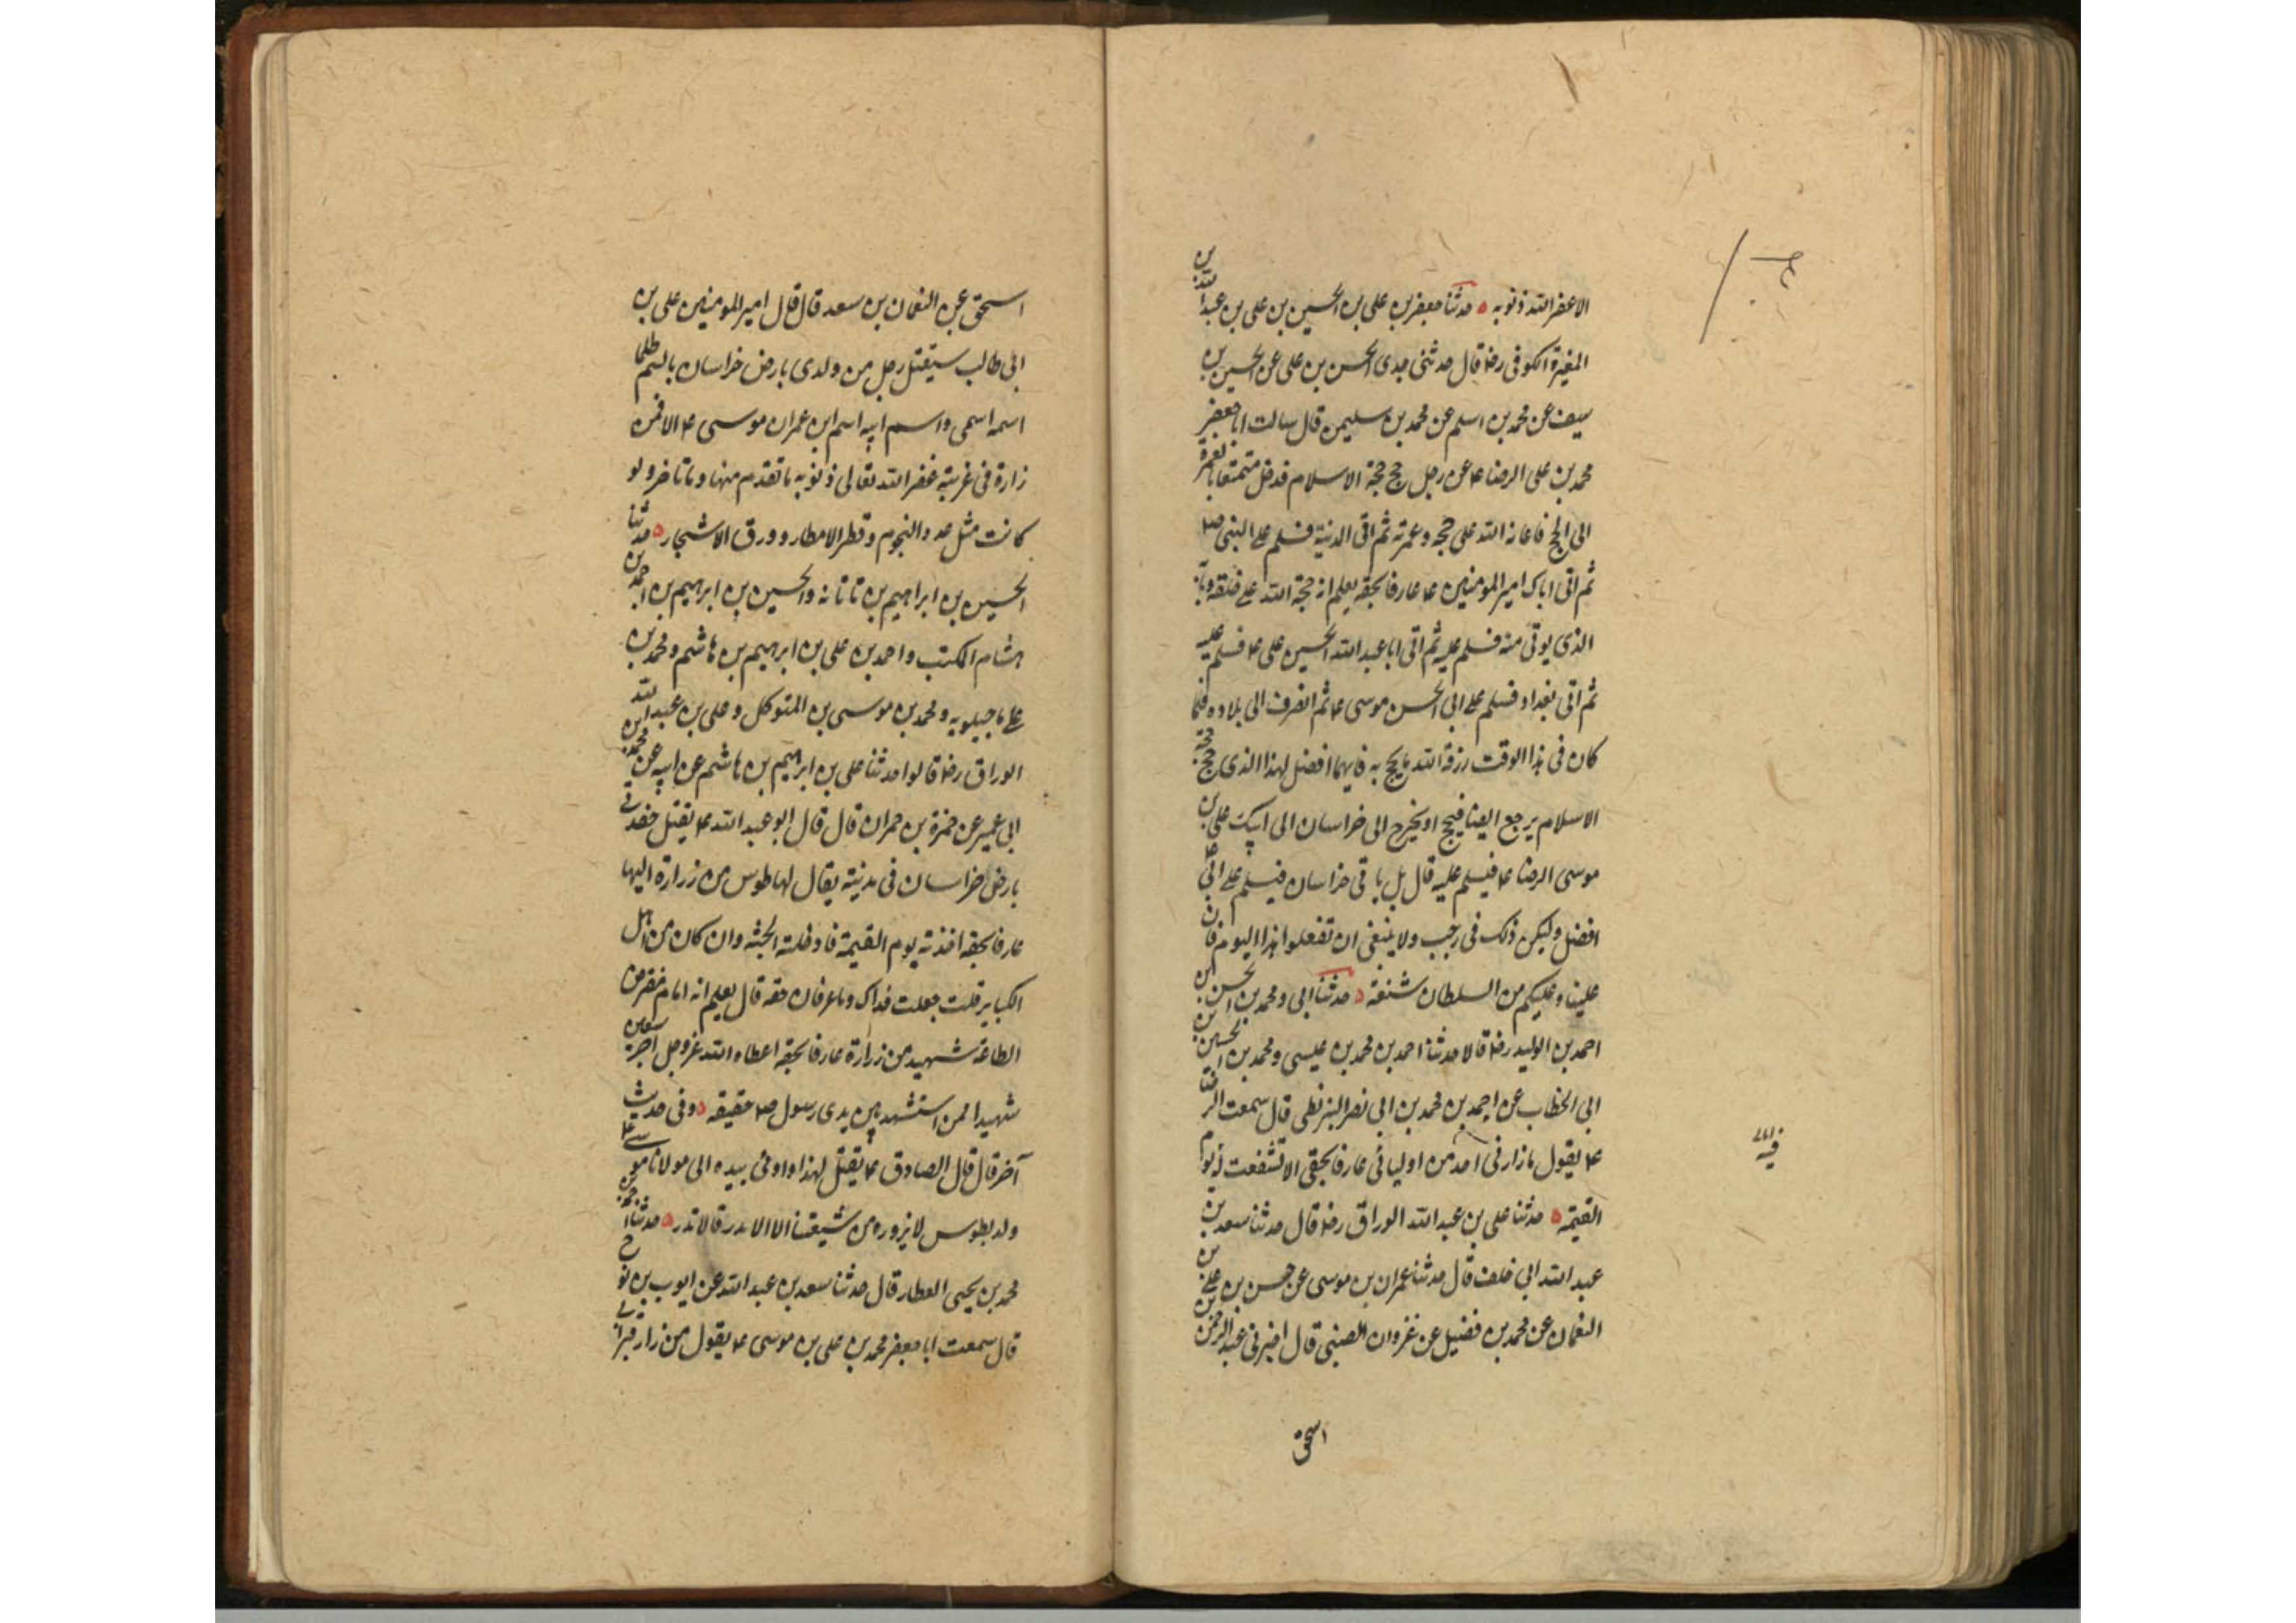 الا غفر الله ذنوبه حدثنا جعفر بن على بن الحسين بن على بن عبد الله بن
المغيرة الكوفى رضه قال حدثنى جدى الحسن بن على عن الحسين بن
سيف عن محمد بن اسلم عن محمد بن سليمن قال سالت ابا جعفر
محمد بن على الرضا ع عن رجل حج حجة الاسلام فدخل متمتعا بالعمرة
الى الحج فاعانه الله على حجه وعمرته ثم اتى المدنية فسلم على النبى ص
ثم اتى اباك امير المومنين ع عارفا بحقه يعلم انه حجة الله على خلقه وبابه
الذى يوتى منه فسلم عليه ثم اتى ابا عبد الله الحسين على ع فسلم عليه
ثم اتى بغداد فسلم على ابى الحسن موسى ع ثم انصرف الى بلاده فلما
كان فى هذا الوقت رزقه الله ما يحج به فايهما افضل لهذا الذى حج حجة
الاسلام يرجع ايضا فيحج او يخرج الى خراسان الى ابيك على بن
موسى الرضا ع فيسلم عليه قال بل ياتى خراسان فيسلم على ابى ع
افضل وليكن ذلك فى رجب ولا ينبغى ان تفعلوا هذا اليوم فان
علينا وعليكم من السلطان شنعة حدثنا ابى ومحمد بن الحسن بن
احمد بن الوليد رضه قالا حدثنا احمد بن محمد بن عيسى ومحمد بن الحسين بن
ابى الخطاب عن احمد بن محمد بن ابى نصر البزنطى قال سمعت الرضا
ع يقول ما زارنى احد من اوليائى عارفا بحقى الا تشفعت له يوم
القيمة حدثنا على بن عبد الله الوراق رضه قال حدثنا سعد بن
عبد الله ابى خلف قال حدثنا عمران بن موسى عن حسن بن على بن
النعمان عن محمد بن فضيل عن غزوان الضبى قال اخبرنى عبد الرحمن بن
اسحق
فيه
اسحق عن النعمان بن سعد قال قال امير المومنين على بن
ابى طالب سيقتل رجل من ولدى بارض خراسان بالسم ظلما
اسمه اسمى واسم ابيه اسم ابن عمران موسى ع الا فمن
زاره فى غربته غفر الله تعالى ذنوبه ما تقدم منها وما تاخر ولو
كانت مثل عدد النجوم وقطر الامطار وورق الاشجار حدثنا
الحسين بن ابراهيم بن تاتانه والحسين بن ابراهيم بن احمد بن
هشام المكتب واحمد بن على بن ابرهيم بن هاشم ومحمد بن
على ماجيلويه ومحمد بن موسى بن المتوكل وعلى بن عبد الله
الوراق رضه قالوا حدثنا على بن ابرهيم بن هاشم عن ابيه عن محمد بن
ابى عمير عن حمزة بن حمران قال قال ابو عبد الله ع يقتل حفدتى
بارض خراسان فى مدنية يقال لها طوس من زاره اليها
عارفا بحقه اخذته يوم القيمة فادخلته الجنة وان كان من اهل
الكباير قلت جعلت فداك وما عرفان حقه قال يعلم انه امام مفترض
الطاعة شهيد من زاره عارفا بحقه اعطاه الله عز وجل اجر سبعين
شهيدا ممن استشهد بين يدى رسول ص حقيقه وفى حديث
آخر قال قال الصادق ع يقتل لهذا واومى بيده الى مولانا موسى ع
ولد بطوس لا يزوره من شيعتنا الا الاندر فالاندر حدثنا احمد بن
محمد بن يحيى العطار قال حدثنا سعد بن عبد الله عن ايوب بن نوح
قال سمعت ابا جعفر محمد بن على بن موسى ع يقول من زار قبر ابى